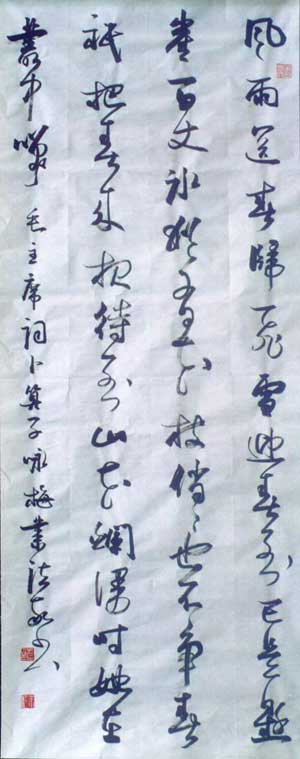 风雨送春歸飞雪迎春到已是懸
崖百丈冰猶有花枝俏俏也不争春
祇把春来报待到山花斓漫时她在
叢中咲 毛主席词卜算子咏梅 業法